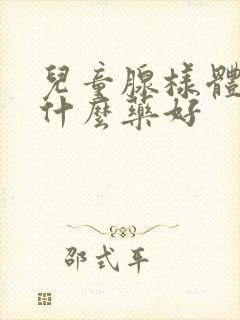 兒童腺樣體
什麼藥好
邵式平